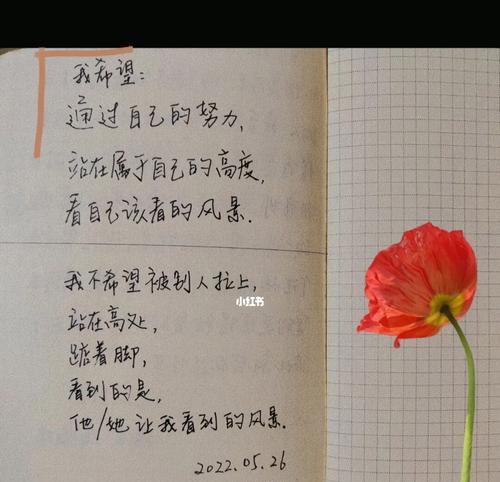 我希望：
通过自己的努力，
站在属于自己的高度，
看自己该看的风景.
我不希望被别人拉上，
小红书
站在高处，
踮着脚，
看到的是，
他/她让我看到的风景.
2022.05.26